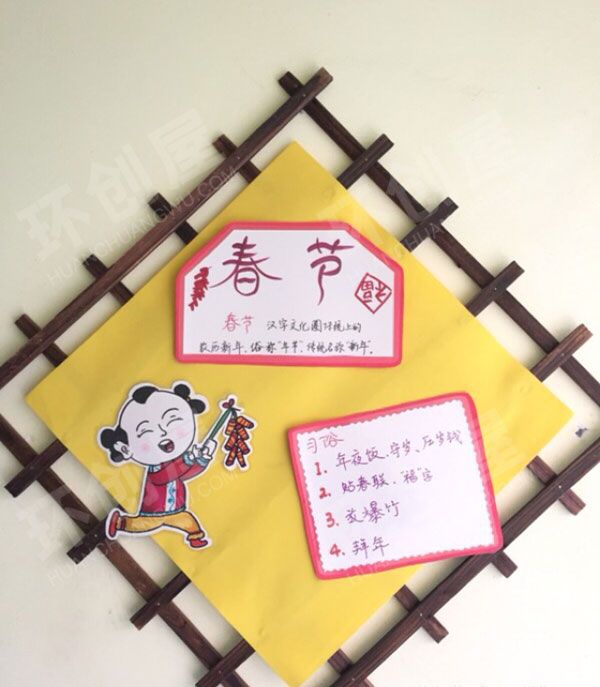 春节
福
春节 汉字文化圈传统上的
农历新年。俗称"年节"，传统名称"新年"。
习俗
1. 年夜饭、守岁、压岁钱
2. 贴春联、"福"字
3. 放爆竹
4. 拜年
环创屋
HUANCHUANGWU.COM